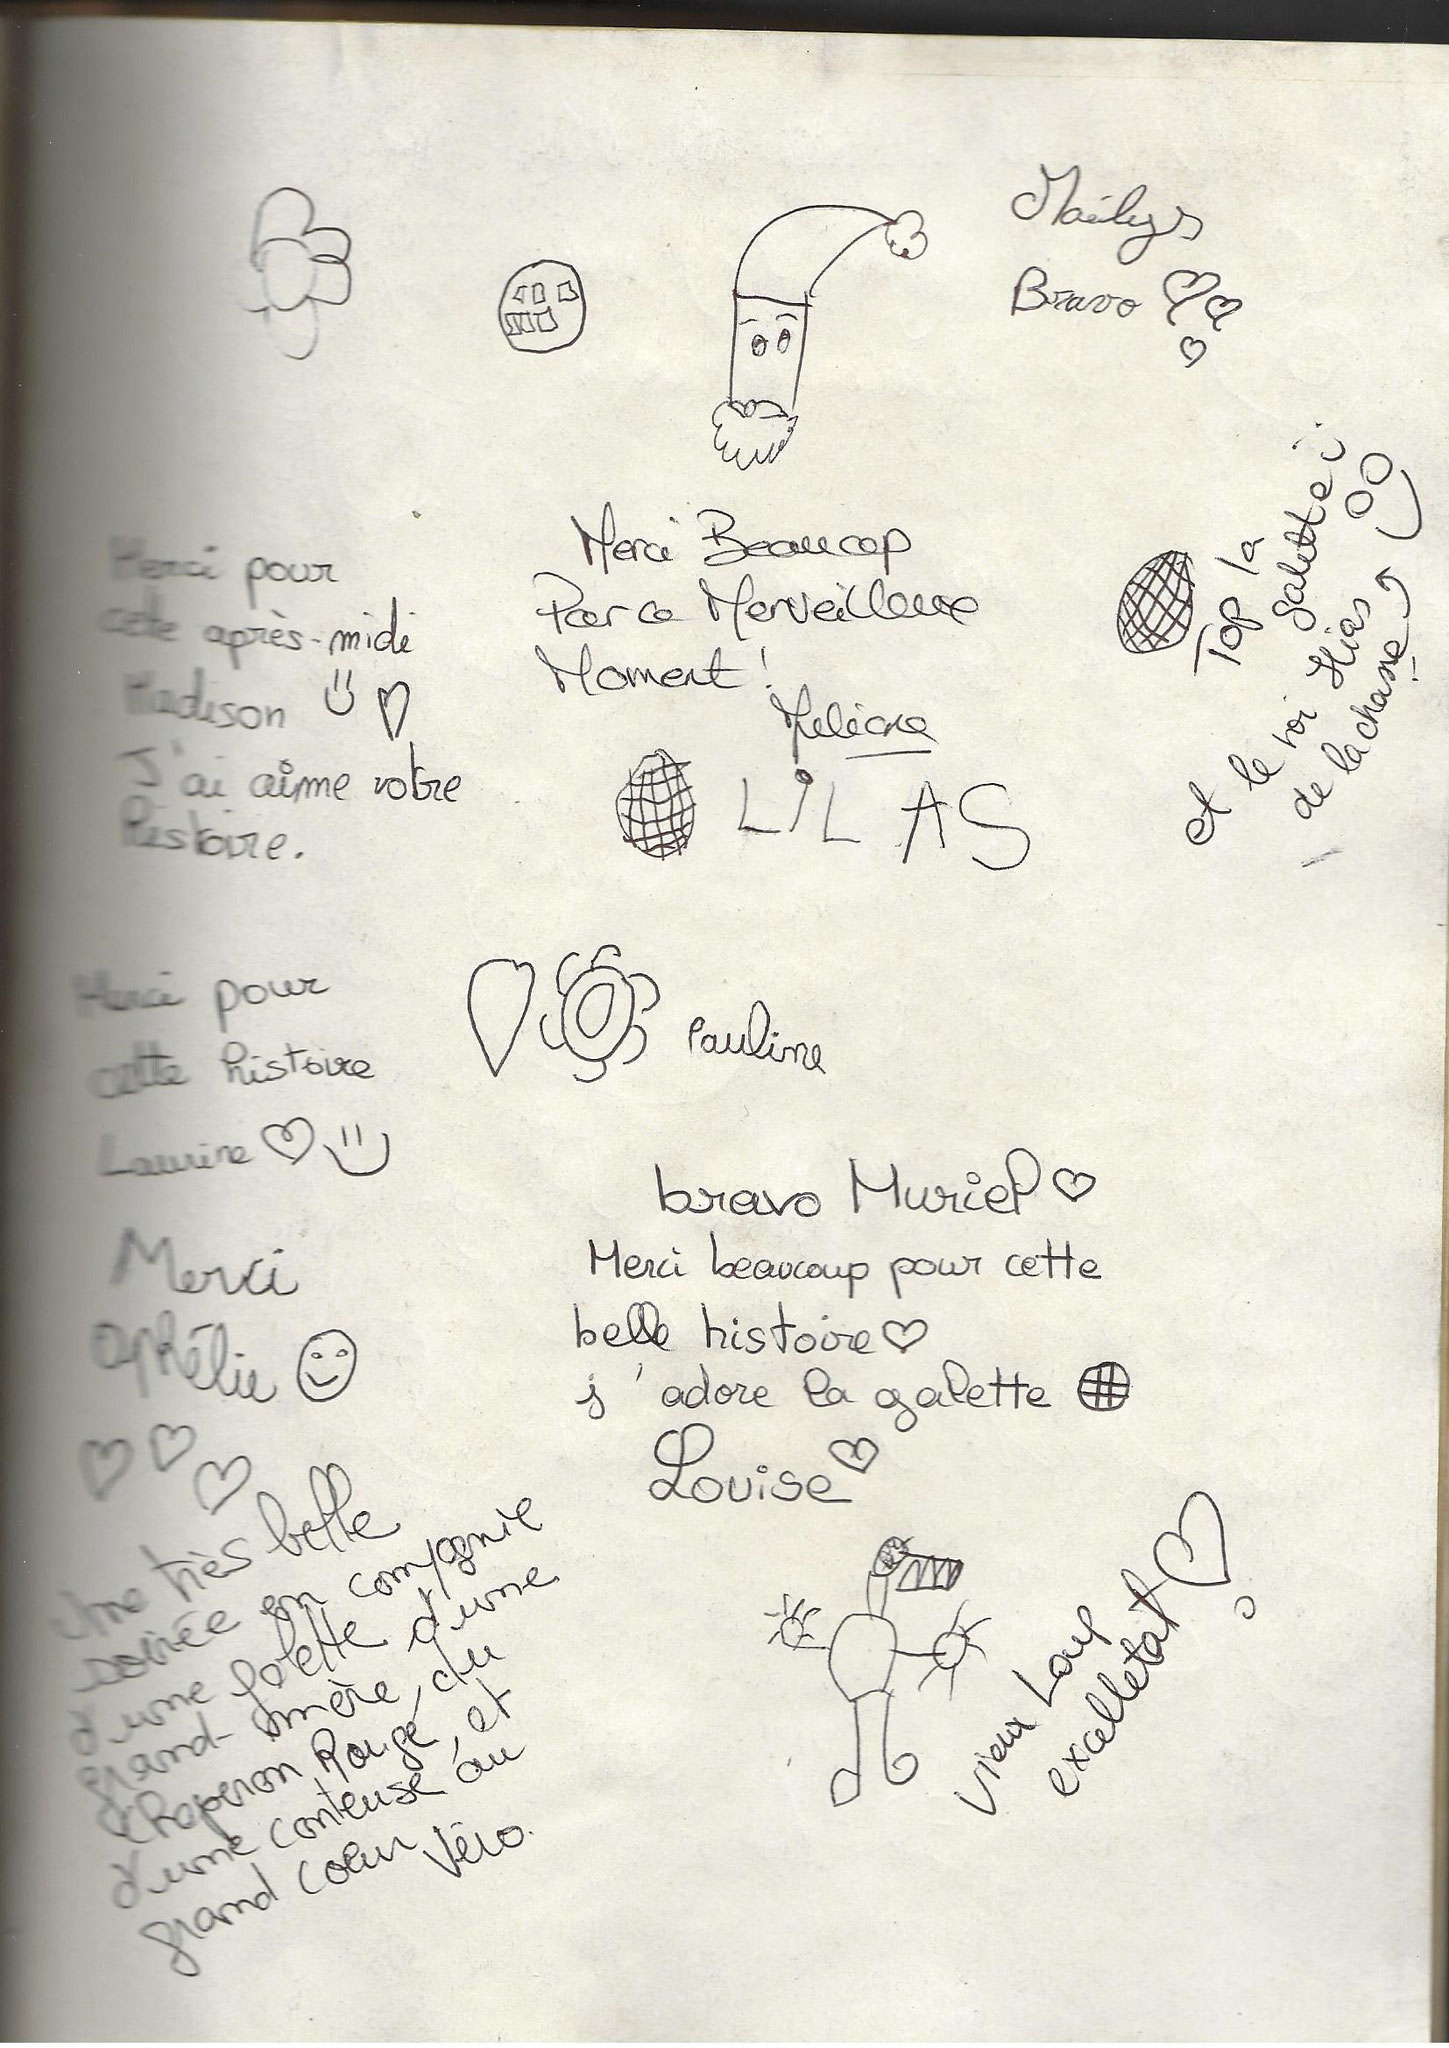 Maëlys
Bravo
Merci Beaucop
Pour ce Merveilleux
Moment !
Top la
galette
et le roi
de la chasse !
Merci pour
cette après-midi
Madison
J'ai aimé votre
histoire.
LILAS
Merci pour
cette histoire
Laurine
Pauline
Merci
Ophélie
bravo Muriel
Merci beaucoup pour cette
belle histoire
j'adore la galette
Louise
Une très belle
soirée en compagnie
d'une folette d'une
grand-mère, du
chaperon Rougé et
d'une conteuse au
grand coeur Véro.
vieux Loup
excelletat